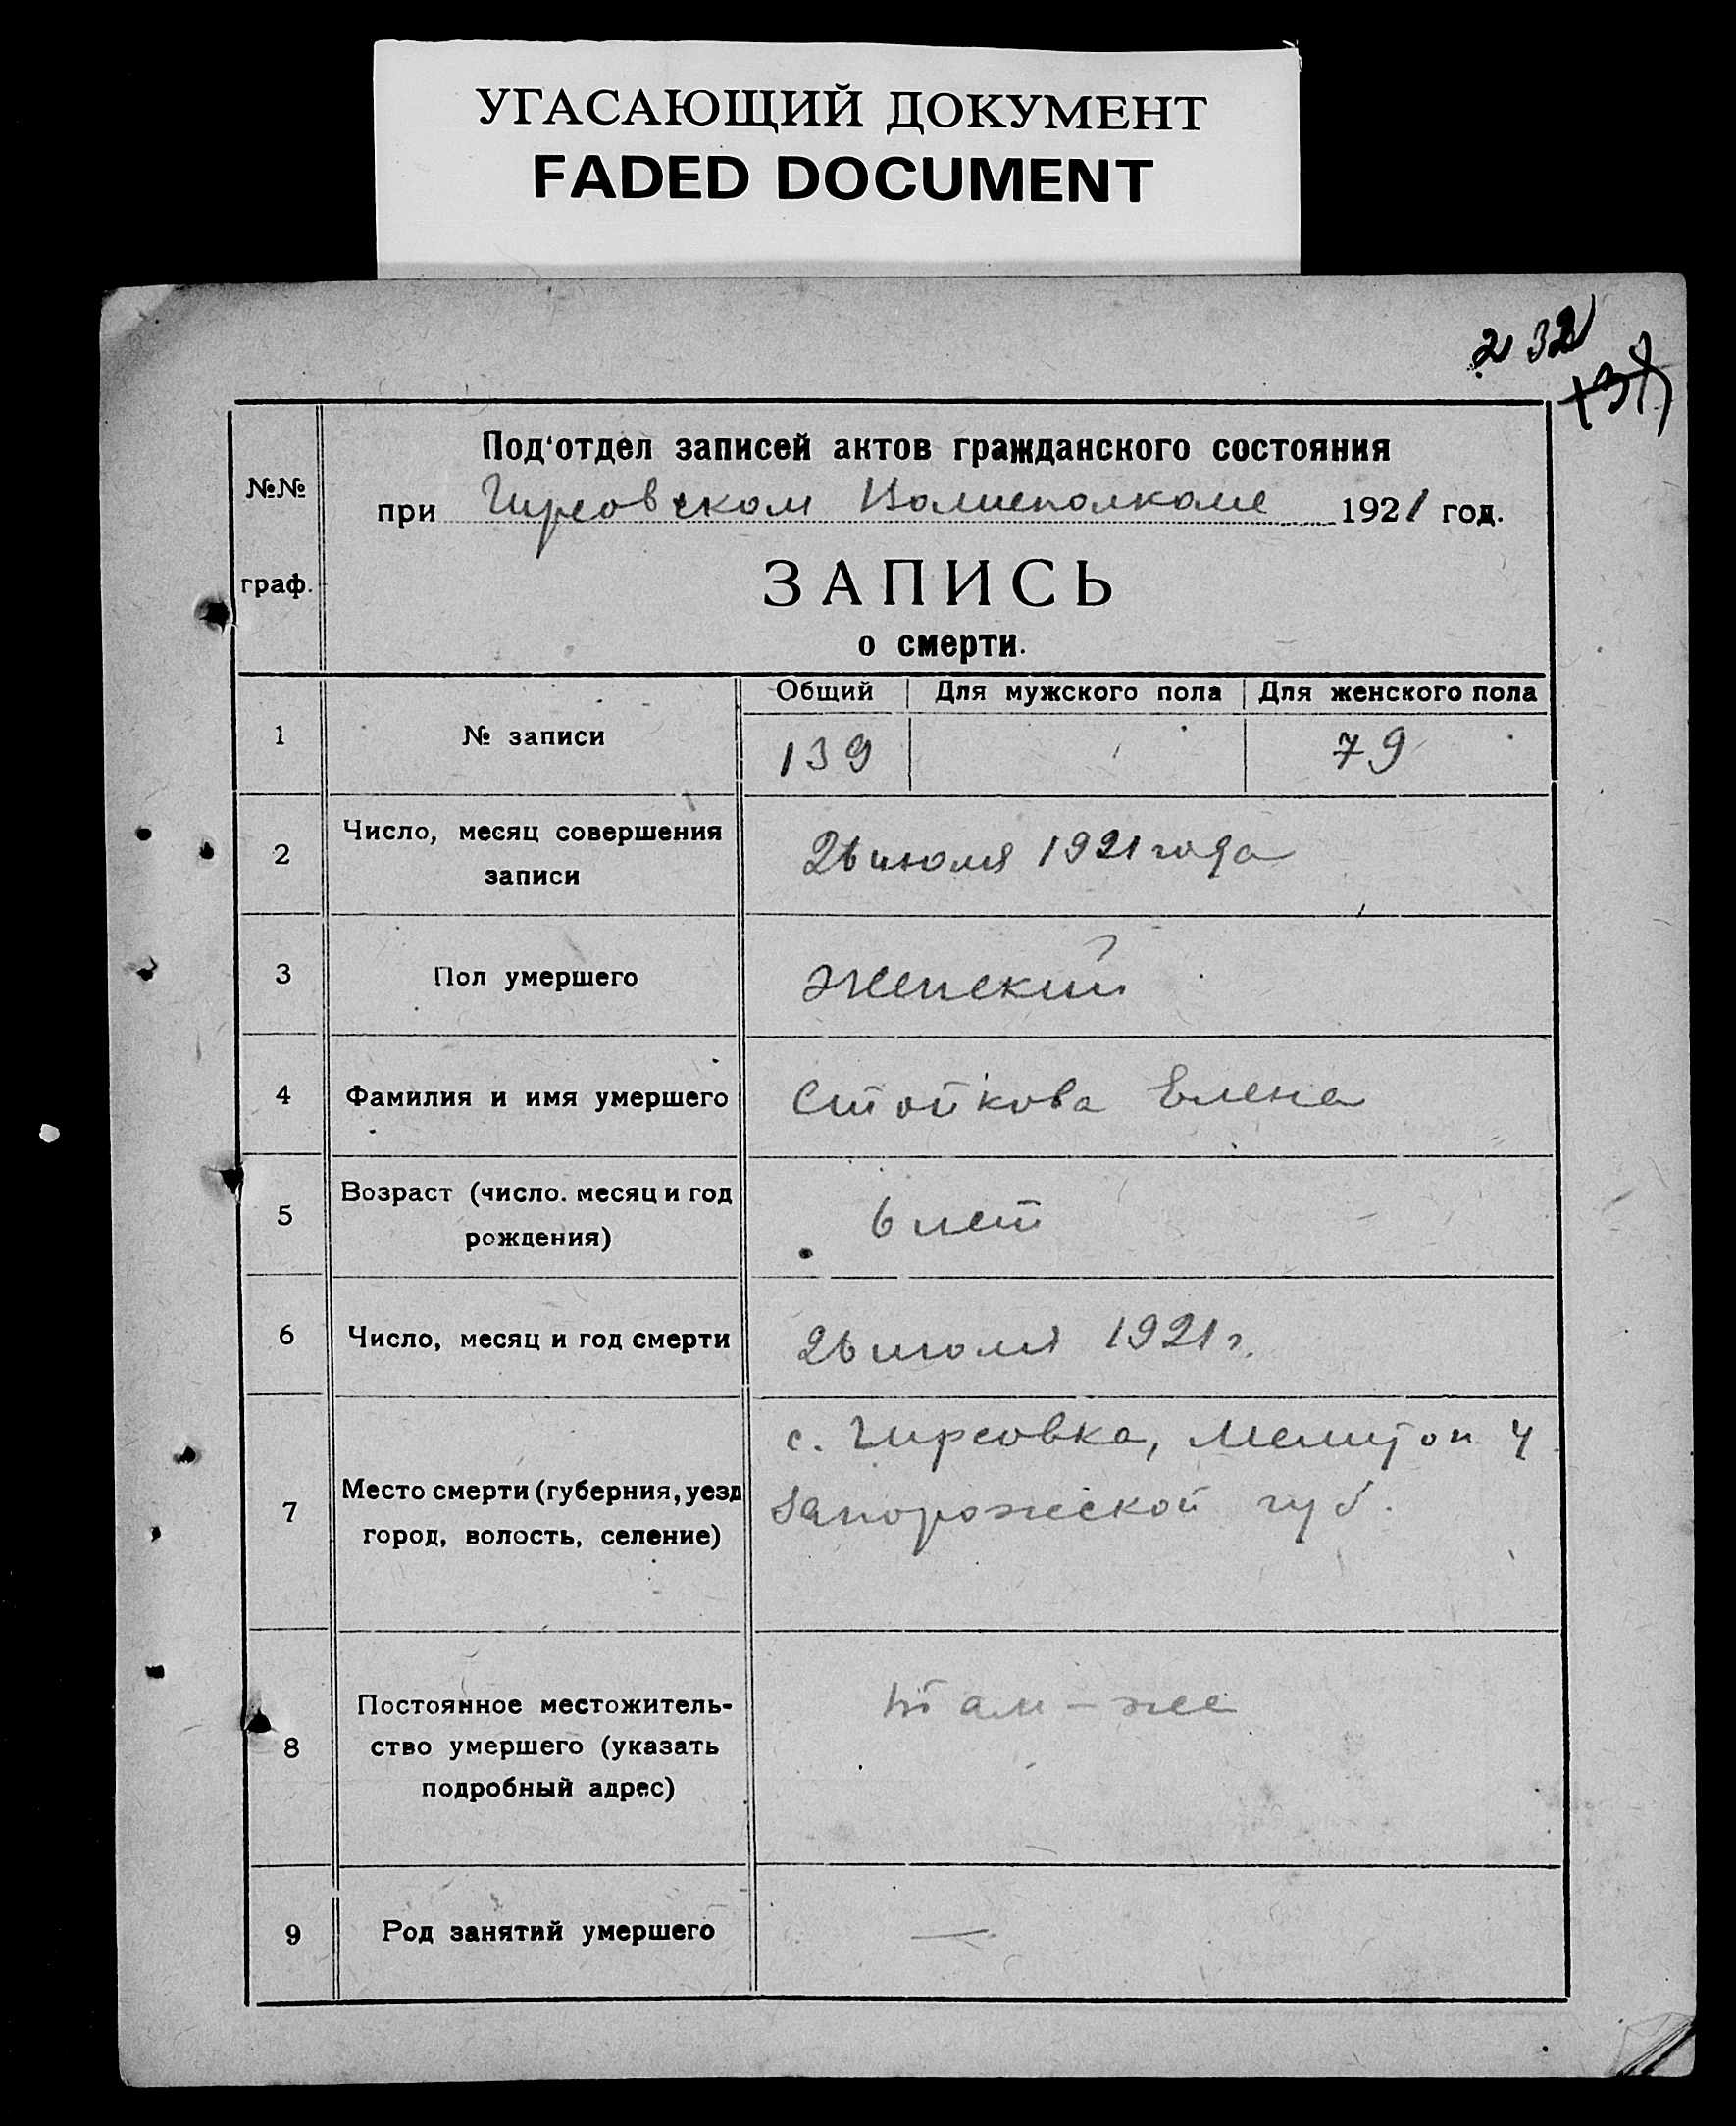 УГАСАЮЩИЙ ДОКУМЕНТ
FADED DOCUMENT
232
№№
граф.
Под'отдел записей актов гражданского состояния
при Гирсовском Волисполкоме 1921 год.
ЗАПИСЬ
о смерти.
Общий Для мужского пола Для женского пола
1 № записи 139 79
2 Число, месяц совершения
записи
26 июля 1921 года
3 Пол умершего Женский
4 Фамилия и имя умершего Стойкова Елена
5 Возраст (число. месяц и год
рождения)
6 лет
6 Число, месяц и год смерти 26 июля 1921 г.
7 Место смерти (губерния, уезд
город, волость, селение)
с. Гирсовка, Мелитоп. у
Запорожской губ.
8 Постоянное местожитель-
ство умершего (указать
подробный адрес)
Там-же
9 Род занятий умершего —